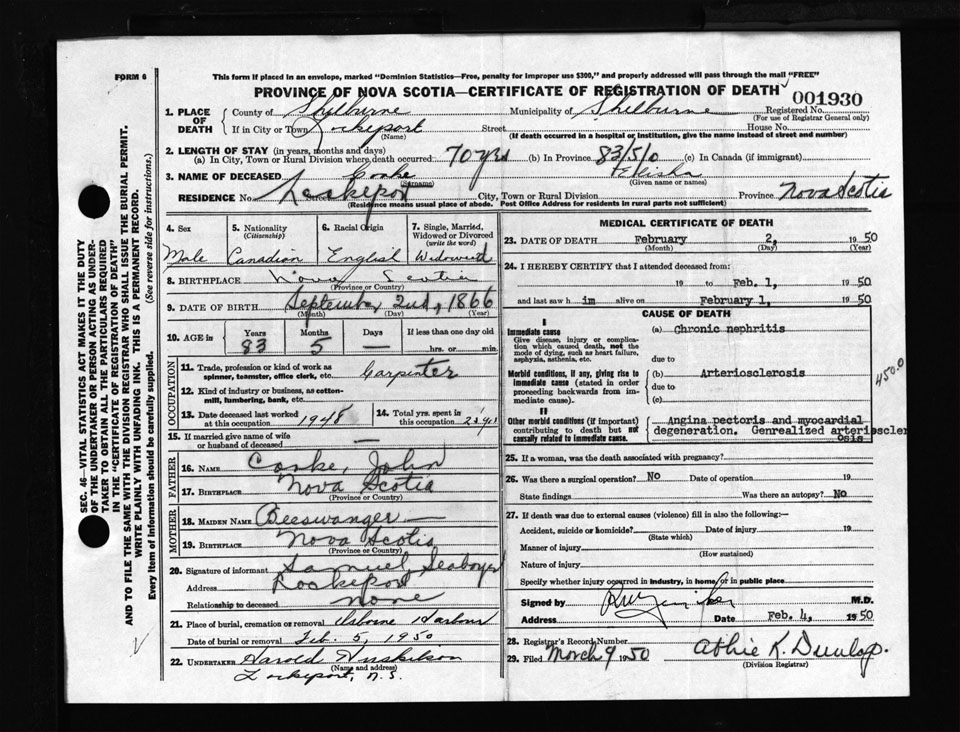 FORM 6
This form if placed in an envelope, marked "Dominion Statistics—Free, penalty for improper use $300," and properly addressed will pass through the mail "FREE"
PROVINCE OF NOVA SCOTIA—CERTIFICATE OF REGISTRATION OF DEATH
001930
1. PLACE OF DEATH County of Shelburne Municipality of Shelburne Registered No.
(For use of Registrar General only)
If in City or Town Lockeport Street House No.
(Name) (If death occurred in a hospital or institution, give the name instead of street and number)
2. LENGTH OF STAY (in years, months and days)
(a) In City, Town or Rural Division where death occurred 70 yrs (b) In Province 83/5/0 (c) In Canada (if immigrant)
3. NAME OF DECEASED Cooke Elisha
(Surname) (Given name or names)
RESIDENCE No. Street Lockeport City, Town or Rural Division Province Nova Scotia
(Residence means usual place of abode. Post Office Address for residents in rural parts not sufficient)
4. Sex 5. Nationality (Citizenship) 6. Racial Origin 7. Single, Married, Widowed or Divorced (write the word)
Male Canadian English Widowed
8. BIRTHPLACE Nova Scotia
(Province or Country)
9. DATE OF BIRTH September 2nd, 1866
(Month) (Day) (Year)
10. AGE in Years Months Days If less than one day old
83 5 — hrs. or min.
OCCUPATION
11. Trade, profession or kind of work as spinner, teamster, office clerk, etc. Carpenter
12. Kind of industry or business, as cotton-mill, lumbering, bank, etc.
13. Date deceased last worked at this occupation 1948 14. Total yrs. spent in this occupation
15. If married give name of wife or husband of deceased —
FATHER
16. NAME Cooke, John
17. BIRTHPLACE Nova Scotia
(Province or Country)
MOTHER
18. MAIDEN NAME Beeswanger —
19. BIRTHPLACE Nova Scotia
(Province or Country)
20. Signature of informant Samuel Seaboyer
Address Lockeport
Relationship to deceased none
21. Place of burial, cremation or removal Osborne Harbour
Date of burial or removal Feb. 5, 1950
22. UNDERTAKER Harold Huskilson
(Name and address)
Lockeport, N.S.
MEDICAL CERTIFICATE OF DEATH
23. DATE OF DEATH February 2, 1950
(Month) (Day) (Year)
24. I HEREBY CERTIFY that I attended deceased from:
19 to Feb. 1, 1950
and last saw h im alive on February 1, 1950
CAUSE OF DEATH
I
Immediate cause (a) Chronic nephritis
Give disease, injury or complication which caused death, not the mode of dying, such as heart failure, asphyxia, asthenia, etc.
due to
Morbid conditions, if any, giving rise to immediate cause (stated in order proceeding backwards from immediate cause). (b) Arteriosclerosis
due to
(c)
450.0
II
Other morbid conditions (if important) contributing to death but not causally related to immediate cause.
Angina pectoris and myocardial
degeneration. Genrealized arterioscler
osis
25. If a woman, was the death associated with pregnancy?
26. Was there a surgical operation? No Date of operation 19
State findings Was there an autopsy? No
27. If death was due to external causes (violence) fill in also the following:—
Accident, suicide or homicide? Date of injury 19
(State which)
Manner of injury
(How sustained)
Nature of injury
Specify whether injury occurred in industry, in home, or in public place
Signed by M.D.
Address Date Feb. 4, 1950
28. Registrar's Record Number
29. Filed March 9 1950 Athie K. Dunlop.
(Division Registrar)
SEC. 46—VITAL STATISTICS ACT MAKES IT THE DUTY
OF THE UNDERTAKER OR PERSON ACTING AS UNDER-
TAKER TO OBTAIN ALL THE PARTICULARS REQUIRED
IN THE "CERTIFICATE OF REGISTRATION OF DEATH"
AND TO FILE THE SAME WITH THE DIVISION REGISTRAR WHO SHALL ISSUE THE BURIAL PERMIT.
WRITE PLAINLY WITH UNFADING INK. THIS IS A PERMANENT RECORD.
Every item of information should be carefully supplied. (See reverse side for instructions.)